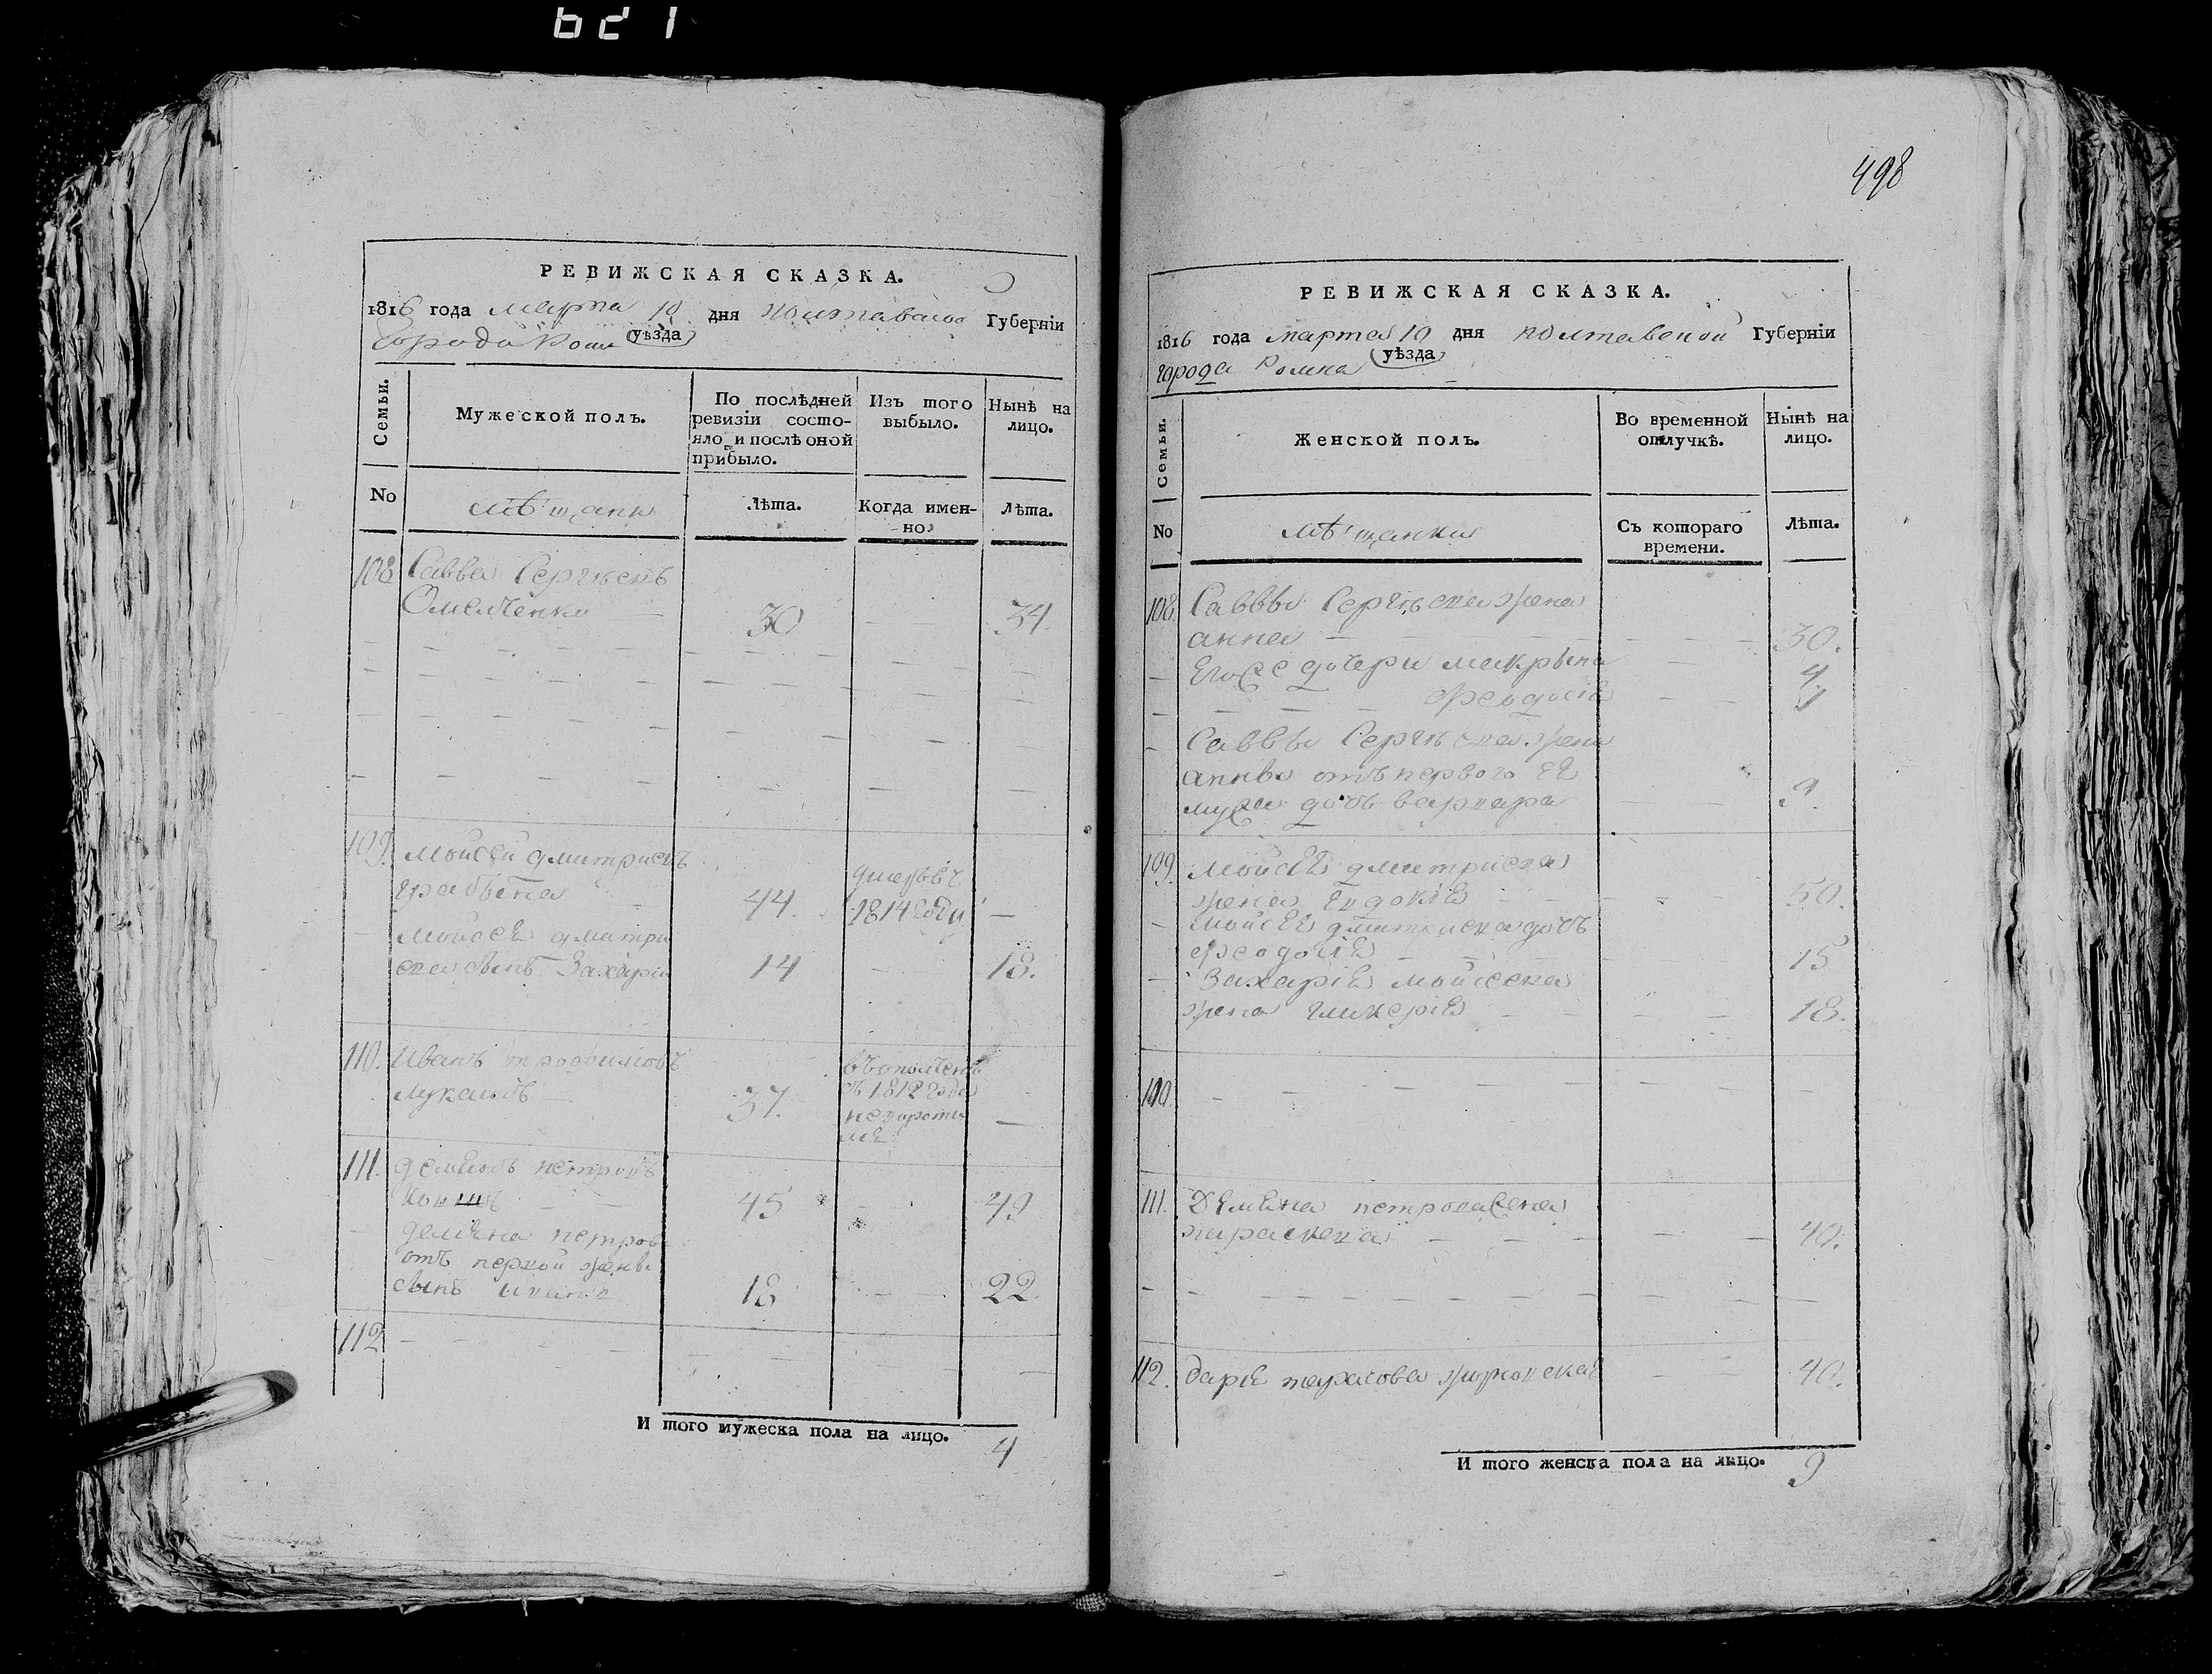 621
РЕВИЖСКАЯ СКАЗКА.
1816 года марта 10 дня Полтавской Губерніи
города Ромна уѣзда
Семьи.
Мужеской полъ.
По послѣдней ревизіи состо-
яло и послѣ оной прибыло.
Изъ того выбыло.
Нынѣ на лицо.
No
мѣщане
Лѣта.
Когда имен-
но.
Лѣта.
108 Савва Сергѣевъ
Омелченко 30 34.
109. Мойсей Дмитріевъ
44. 1814 году
Мойсея Дмитри
ева сынъ Захарія 14 18.
110. Иванъ Трофимовъ
37. съ 1812 года
111. Демьянъ Петровъ
45 49
Демьяна Петрова
отъ первой жены
сынъ Иванъ 18 22
112
И того мужеска пола на лицо. 4
498
РЕВИЖСКАЯ СКАЗКА.
1816 года марта 10 дня Полтавской Губерніи
города Ромна уѣзда
Семьи.
Женской полъ.
Во временной отлучкѣ.
Нынѣ на лицо.
No
мѣщанки
Съ котораго времени.
Лѣта.
108. Саввы Сергѣева жена
анна 30.
Его же дочери макрына 4.
феодосія 1
Саввы Сергѣева жены
анны отъ первого ея
мужа дочь варвара 9.
109. Мойсея Дмитриева
жена Евдокія 50.
Мойсея Дмитриева дочь
феодосія 15
Захарія Мойсеева
жена гликерія 18.
110
111. Демьяна Петрова жена
параскева 40.
112. Дарія Тарасова 40.
И того женска пола на лицо. 9